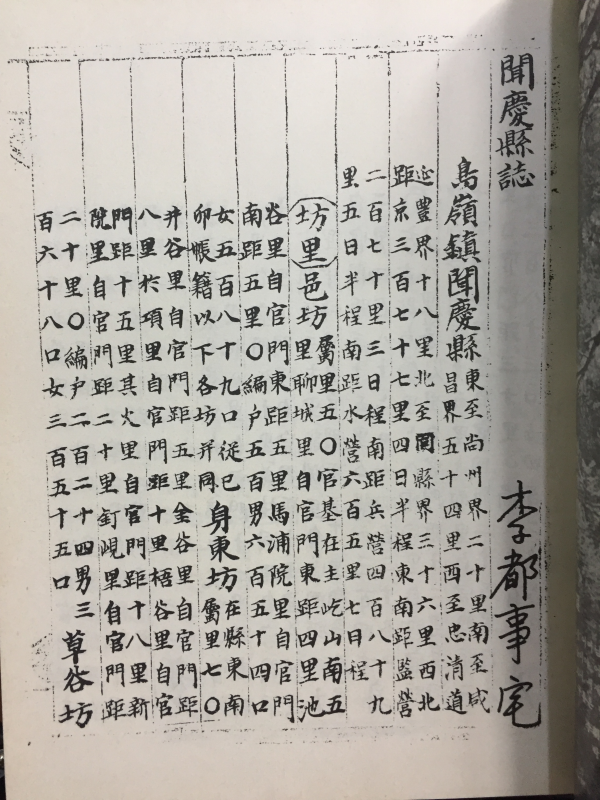 聞慶縣誌 李都事宅
鳥嶺鎮聞慶縣
東至尚州界二十里南至咸
昌界五十四里西至忠清道
延豐界十八里北至同縣界三十六里西北
距京三百七十七里四日半程東南距監營
二百七十里三日程南距兵營四百八十九
里五日半程南距水營六百五里七日程
坊里 邑坊
屬里五〇官基在主屹山南五
里聊城里自官門東距四里池
谷里自官門東距五里馬浦院里自官門
南距五里〇編户五百男六百五十四口
女五百八十九口從己
卯帳籍以下各坊并同
身東坊
在縣東南
屬里七〇
井谷里自官門距五里金谷里自官門距
八里於項里自官門距十里梧谷里自官
門距十五里其火里自官門距十八里新
院里自官門距二十里釘峴里自官門距
二十里〇編户二百二十四男三
百六十八口女三百五十五口
草谷坊